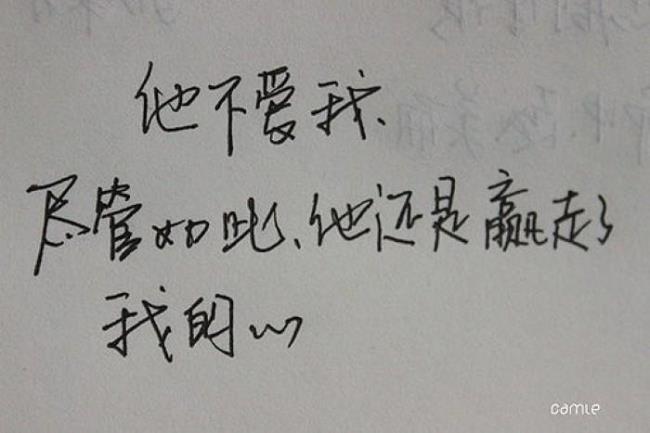 他不爱我、
尽管如此、他还是赢走了
我的心
camle